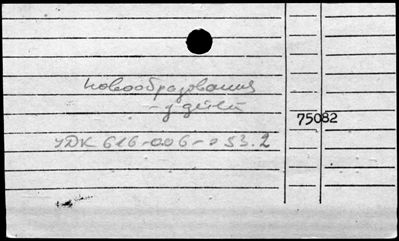 новообразования
- у детей
75082
УДК 616-006-053.2